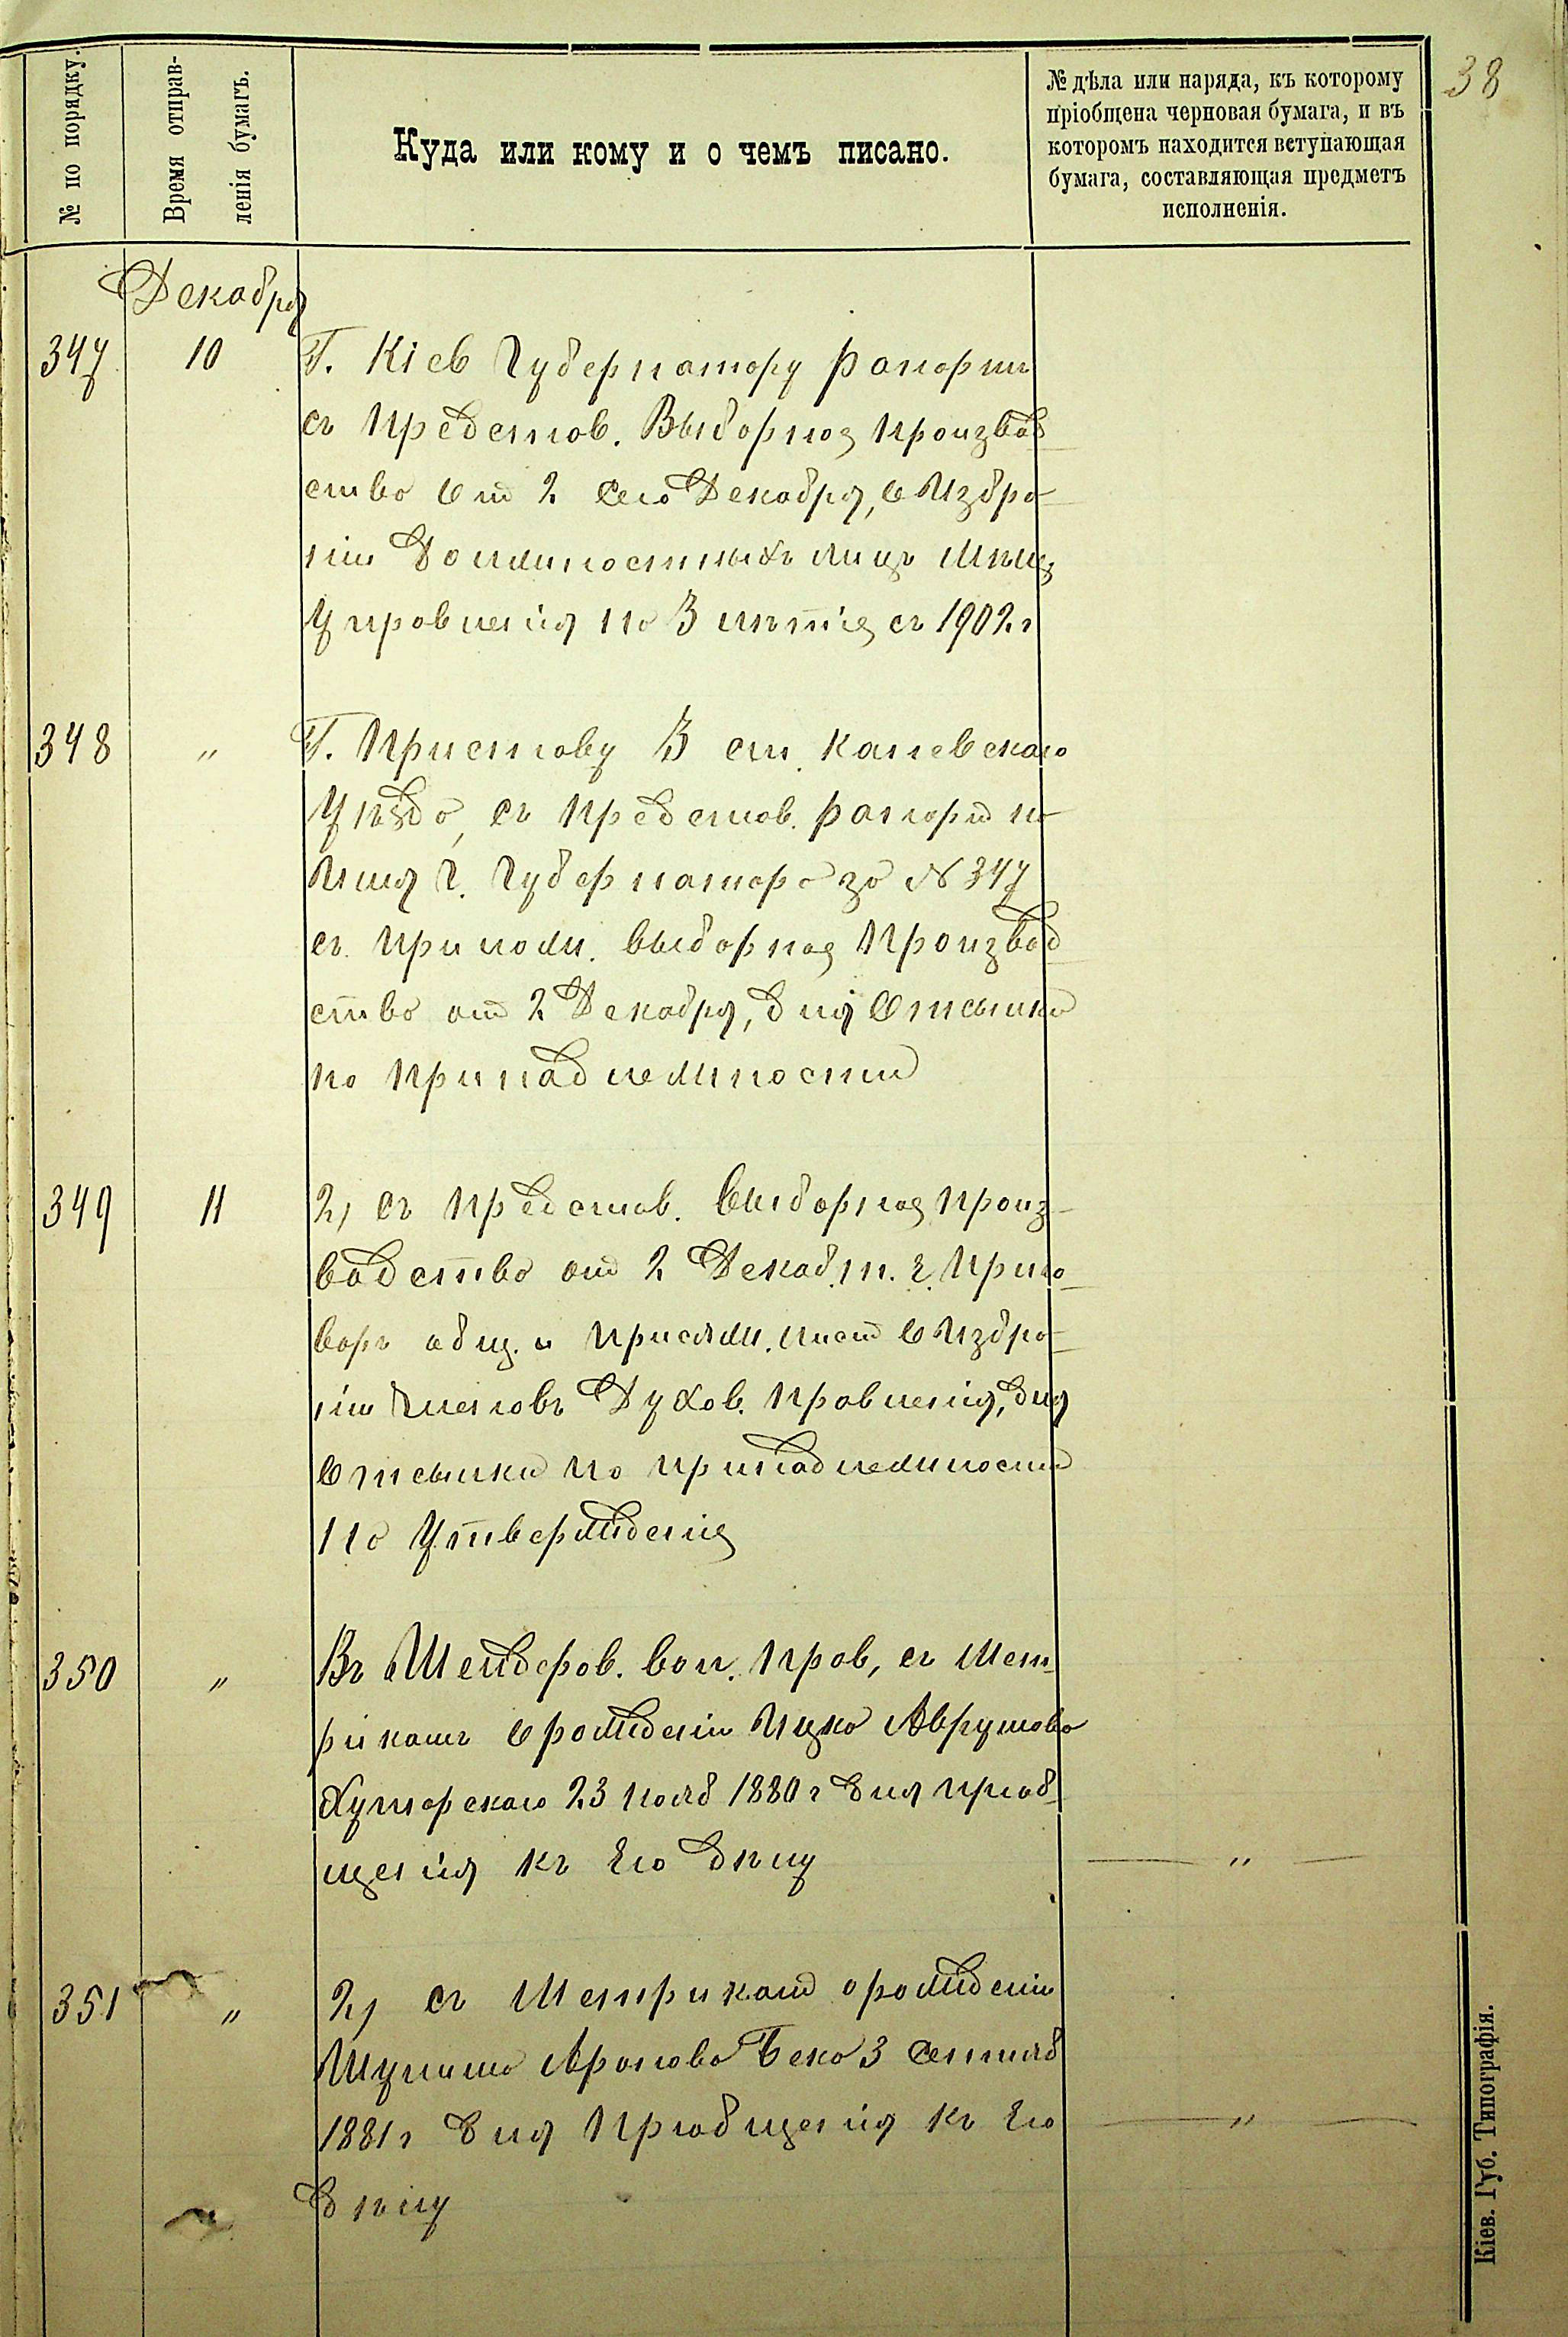 38
№ по порядку.
Время отправ-
ленія бумагъ.
Куда или кому и о чемъ писано.
№ дѣла или наряда, къ которому
пріобщена черновая бумага, и въ
которомъ находится вступающая
бумага, составляющая предметъ
исполненія.
Декабря
347 10 Г. Кіев Губернатору рапортъ
съ представ. Выборное производ
ство от 2 сего Декабря, о избра-
ніи должностныхъ лицъ мѣщ
управленія на 3 лѣтіе съ 1902 г
348 " Г. Приставу 3 ст. Каневскаго
уѣзда, съ представ. рапорта на
имя Г. Губернатора за № 347
съ прилож. выборное производ
ство от 2 Декабря, для отсылки
по принадлежности
349 11 2, съ представ. выборное произ-
водство от 2 Декаб. т. г. приго-
воръ общ. и присяж. лист о избра-
ніи членовъ Духов. правленія, для
отсылки по принадлежности
на утвержденіе
350 " Въ Шендеров. вол. прав, съ мет-
рикатъ о рожденіи Ицко Аврумова
Хуторскаго 23 нояб 1880 г для приоб
щенія къ его дѣлу "
351 " 2, съ метрикат о рожденіи
Шулима Аронова Бека 3 сентяб
1881 г для приобщенія къ его "
дѣлу
Кіев. Губ. Типографія.